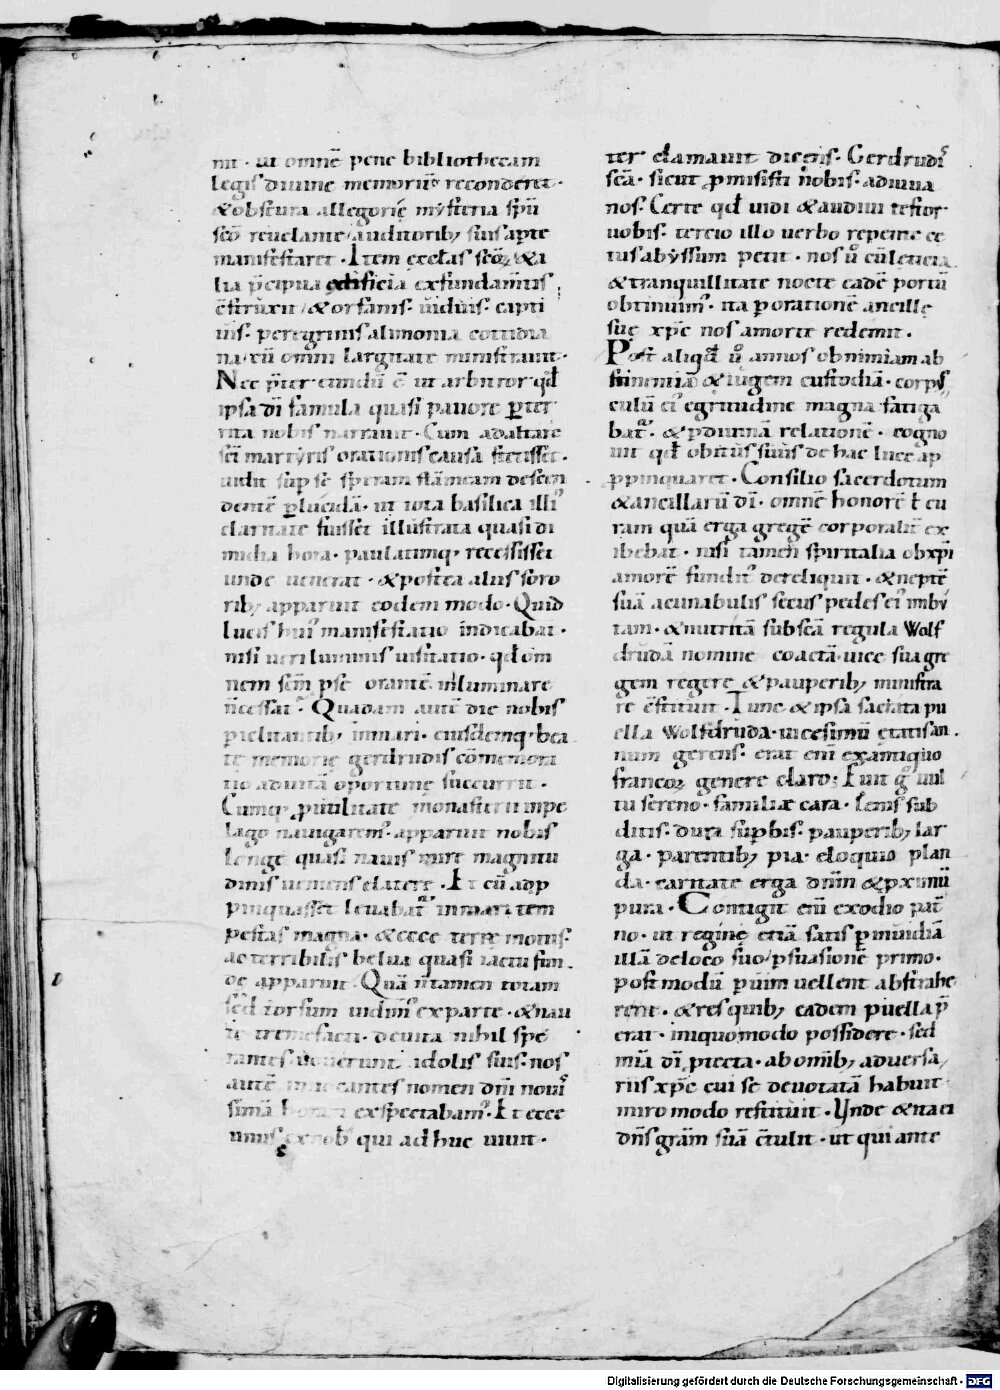 nit · ut omnē pene bibliothecam
legis diuine memoriē reconderet ·
& obscura allegorię mysteria spū
scō reuelante / auditorib; suis apte
manifestaret · Item ecclas scōꝝ & a
lia p̄cipua edificia ex fundam̄tis
c̄struxit / & orfanis · uiduis · capti
uis · peregrinis alimonia cottidia
na / cū omni largitate ministrauit ·
Nec p̄tereundū ē ut arbitror qđ
ipsa dī famula quasi pauore p̱ter
rita nobis narrauit · Cum ad altare
scī martyris orationis causā stetisset ·
uidit sup̱ se speram flāmeam descen
dentē p̱lucidā · ut tota basilica illiꝰ
claritate fuisset illustrata quasi di
midia hora · paulatimq; recessisset
unde uenerat · & postea aliis soro
rib; apparuit eodem modo · Quid
lucis huiꝰ manifestatio indicabat ·
nisi ueri luminis uisitatio · qđ om
nem scm̄ p̱ se orantē inluminare
n̄ cessat · Quadam autē die nobis
p̱iclitantib; in mari · eiusdemq; bea
te memorię gerdrudis cōmemora
tio adiutā oportune succurrit ·
Cumq; p̱ utilitate monasterii in pe
lago nauigaremꝰ · apparuit nobis
longe quasi nauis mire magnitu
dinis ueniens e latere · Et cū adp̱
pinquasset leuabat̄ in mari tem
pestas magna · & ecce terre motus ·
ac terribilis belua quasi iactu fun
de apparuit · Quā n̄ tamen totam
sed dorsum uidimꝰ ex parte · & nau
te tremefacti · de uita nihil spe
rantes · uouerunt idolis suis · nos
autē inuocantes nomen dn̄i nouis
simā horam exspectabamꝰ · Et ecce
unus ex nob̄ qui adhuc uiuit ·
ter clamauit dicens · Gerdrudis
scā · sicut p̱misisti nobis · adiuua
nos · Certe qđ uidi & audiui testor
uobis · tercio illo uerbo repente ce
tus abyssum petit · nos ū cū leticia
& tranquillitate nocte eadē portū
obtinuimꝰ · ita p̱ orationē ancille
sue xp̄c nos a morte redemit ·
Post aliqđ ū annos ob nimiam ab
stinentiā & iugem custodiā · corpꝰ
culū eiꝰ egritudine magna fatiga
bat̄ · & p̱ diuinā relationē · cogno
uit qđ obitus suus de hac luce ap
p̱pinquaret · Consilio sacerdotum
& ancillarū dī · omnē honorē ł cu
ram quā erga gregē corporalit̄ ex
ibebat · nisi tamen spiritalia ob xp̄i
amorē funditꝰ dereliquit · & neptē
suā a cunabulis secus pedes eiꝰ imbu
tam · & nutritā sub scā regula Wolf
drudā nomine coactā · uice sua gre
gem regere & pauperib; ministra
re c̄stituit · Tunc & ipsa sacrata pu
ella Wolfdruda · uicesimū ętatis an
num gerens · erat enī ex antiquo
francoꝝ genere claro; Fuit g̊ uul
tu sereno · familiæ cara · lenis sub
ditis · dura sup̱bis · pauperib; lar
ga · parentib; pia · eloquio plan
da · caritate erga dnm̄ & p̱ximū
pura · Contigit enī ex odio pat̄
no · ut reginę etiā satis p̱ inuidiā
illā de loco suo / p̱suasionē primo ·
postmodū p̱ uim uellent abstrahe
rent · & res quib; eadem puella p̄
erat · iniquo modo possidere · sed
mīa dī p̱tecta · ab omīb; aduersa
riis xp̄c cui se deuotatā habuit
miro modo restituit · Unde & tan
dn̄s grām suā c̄tulit · ut qui ante
Digitalisierung gefördert durch die Deutsche Forschungsgemeinschaft - DFG